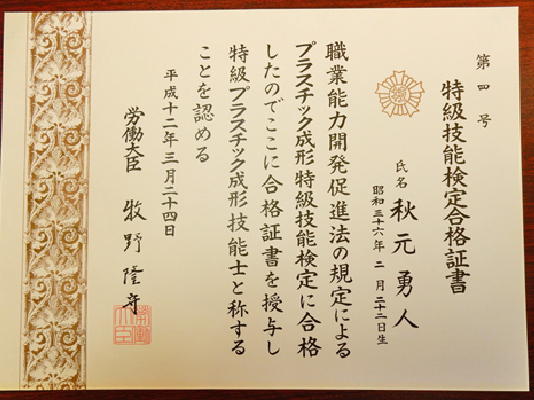 第四号
特級技能検定合格証書
氏名 秋元勇人
昭和三十六年二月二十二日生
職業能力開発促進法の規定による
プラスチック成形特級技能検定に合格
したのでここに合格証書を授与し
特級プラスチック成形技能士と称する
ことを認める
平成十二年三月二十四日
労働大臣 牧野隆守